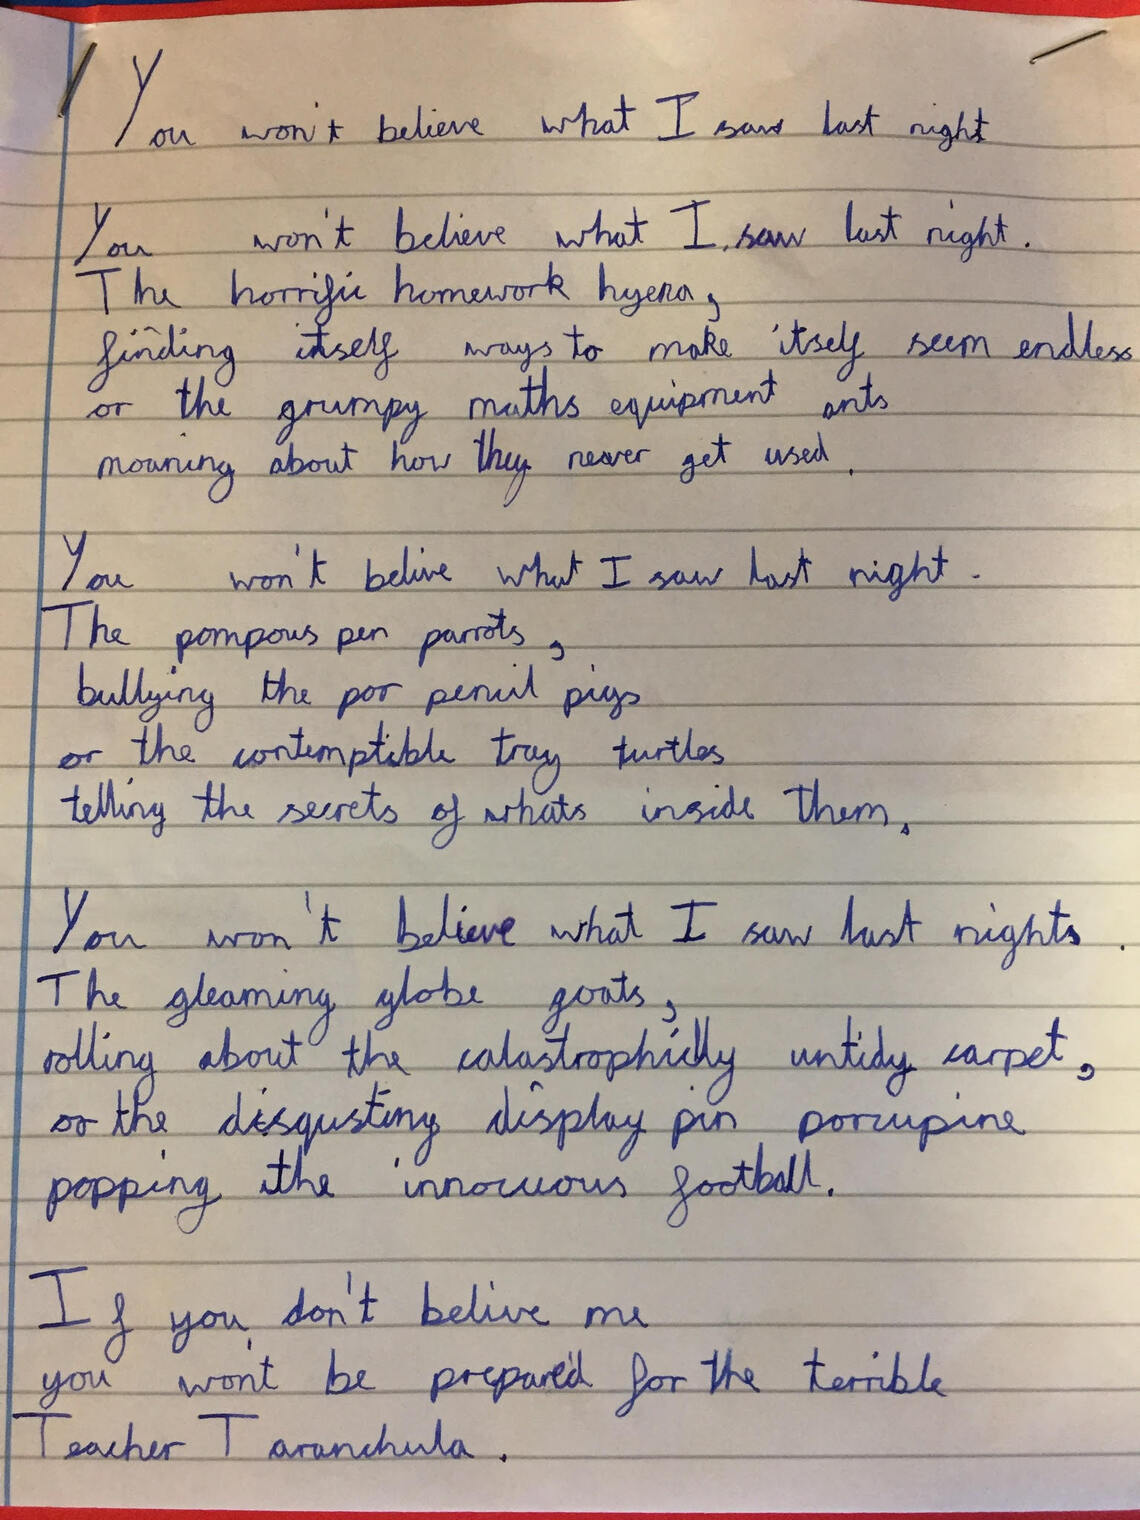 You won't believe what I saw last night
You won't believe what I saw last night.
The horrific homework hyena,
finding itself ways to make itself seem endless
or the grumpy maths equipment ants
moaning about how they never get used.
You won't belive what I saw last night.
The pompous pen parrots,
bullying the por pencil pigs
or the contemptible tray turtles
telling the secrets of whats inside them.
You won't believe what I saw last nights.
The gleaming globe goats,
rolling about the catastrophiclly untidy carpet,
or the disgusting display pin porcupine
popping the innocuous football.
If you don't belive me
you won't be prepared for the terrible
Teacher Taranchula.